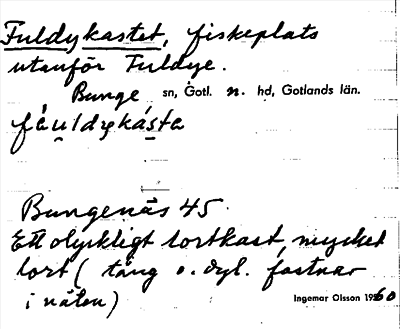 Fuldykastet, fiskeplats
utanför Fuldye.
Bunge sn, Gotl. n. hd, Gotlands län.
fåuldykásta
Bungenäs 45.
Ett olyckligt lortkast, mycket
lort (tång o. dyl. fastnar
i näten)
Ingemar Olsson 1960